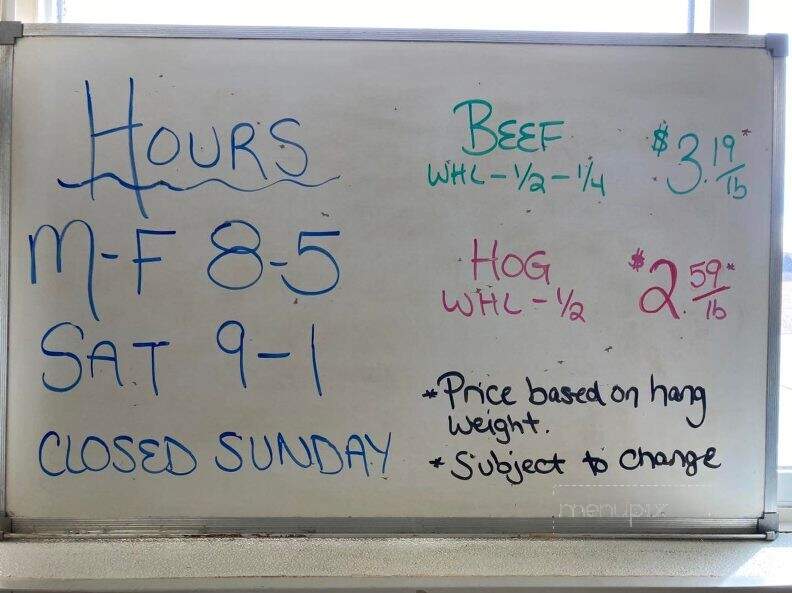 HOURS
M-F 8-5
SAT 9-1
CLOSED SUNDAY
BEEF
WHL - 1/2 - 1/4 $3.19/lb*
HOG
WHL - 1/2 $2.59/lb*
*Price based on hang
weight.
*Subject to change
menupix